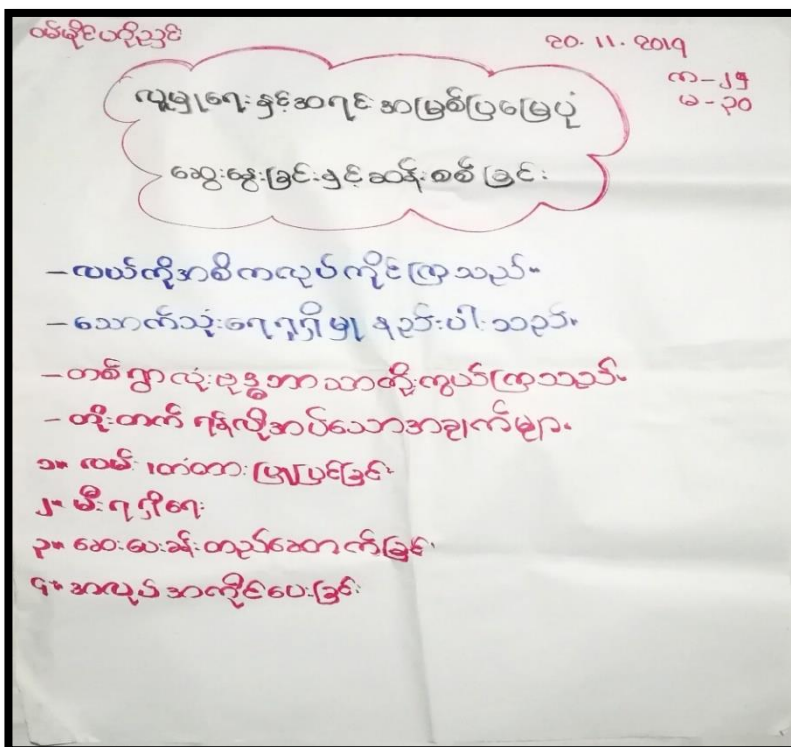 ဝမ်းမိုင်ပဂိုညှင်
20.11.2019
က-၂၅
မ-၃၀
လူမှုရေးနှင့်အရင်းအမြစ်ပြမြေပုံ
ဆွေးနွေးခြင်းနှင့်ဆန်းစစ်ခြင်း
-လယ်ကိုအဓိကလုပ်ကိုင်ကြသည်။
-သောက်သုံးရေရရှိမှုနည်းပါးသည်။
-တစ်ရွာလုံးဗုဒ္ဓဘာသာကိုးကွယ်ကြသည်။
-တိုးတက်ရန်လိုအပ်သောအချက်များ
၁။ လမ်း၊တံတားပြုပြင်ခြင်း
၂။ မီးရရှိရေး
၃။ ဆေးပေးခန်းတည်ဆောက်ခြင်း
၄။ အလုပ်အကိုင်ပေးခြင်း